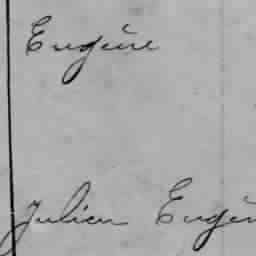 Eugène
Julien Eugèn